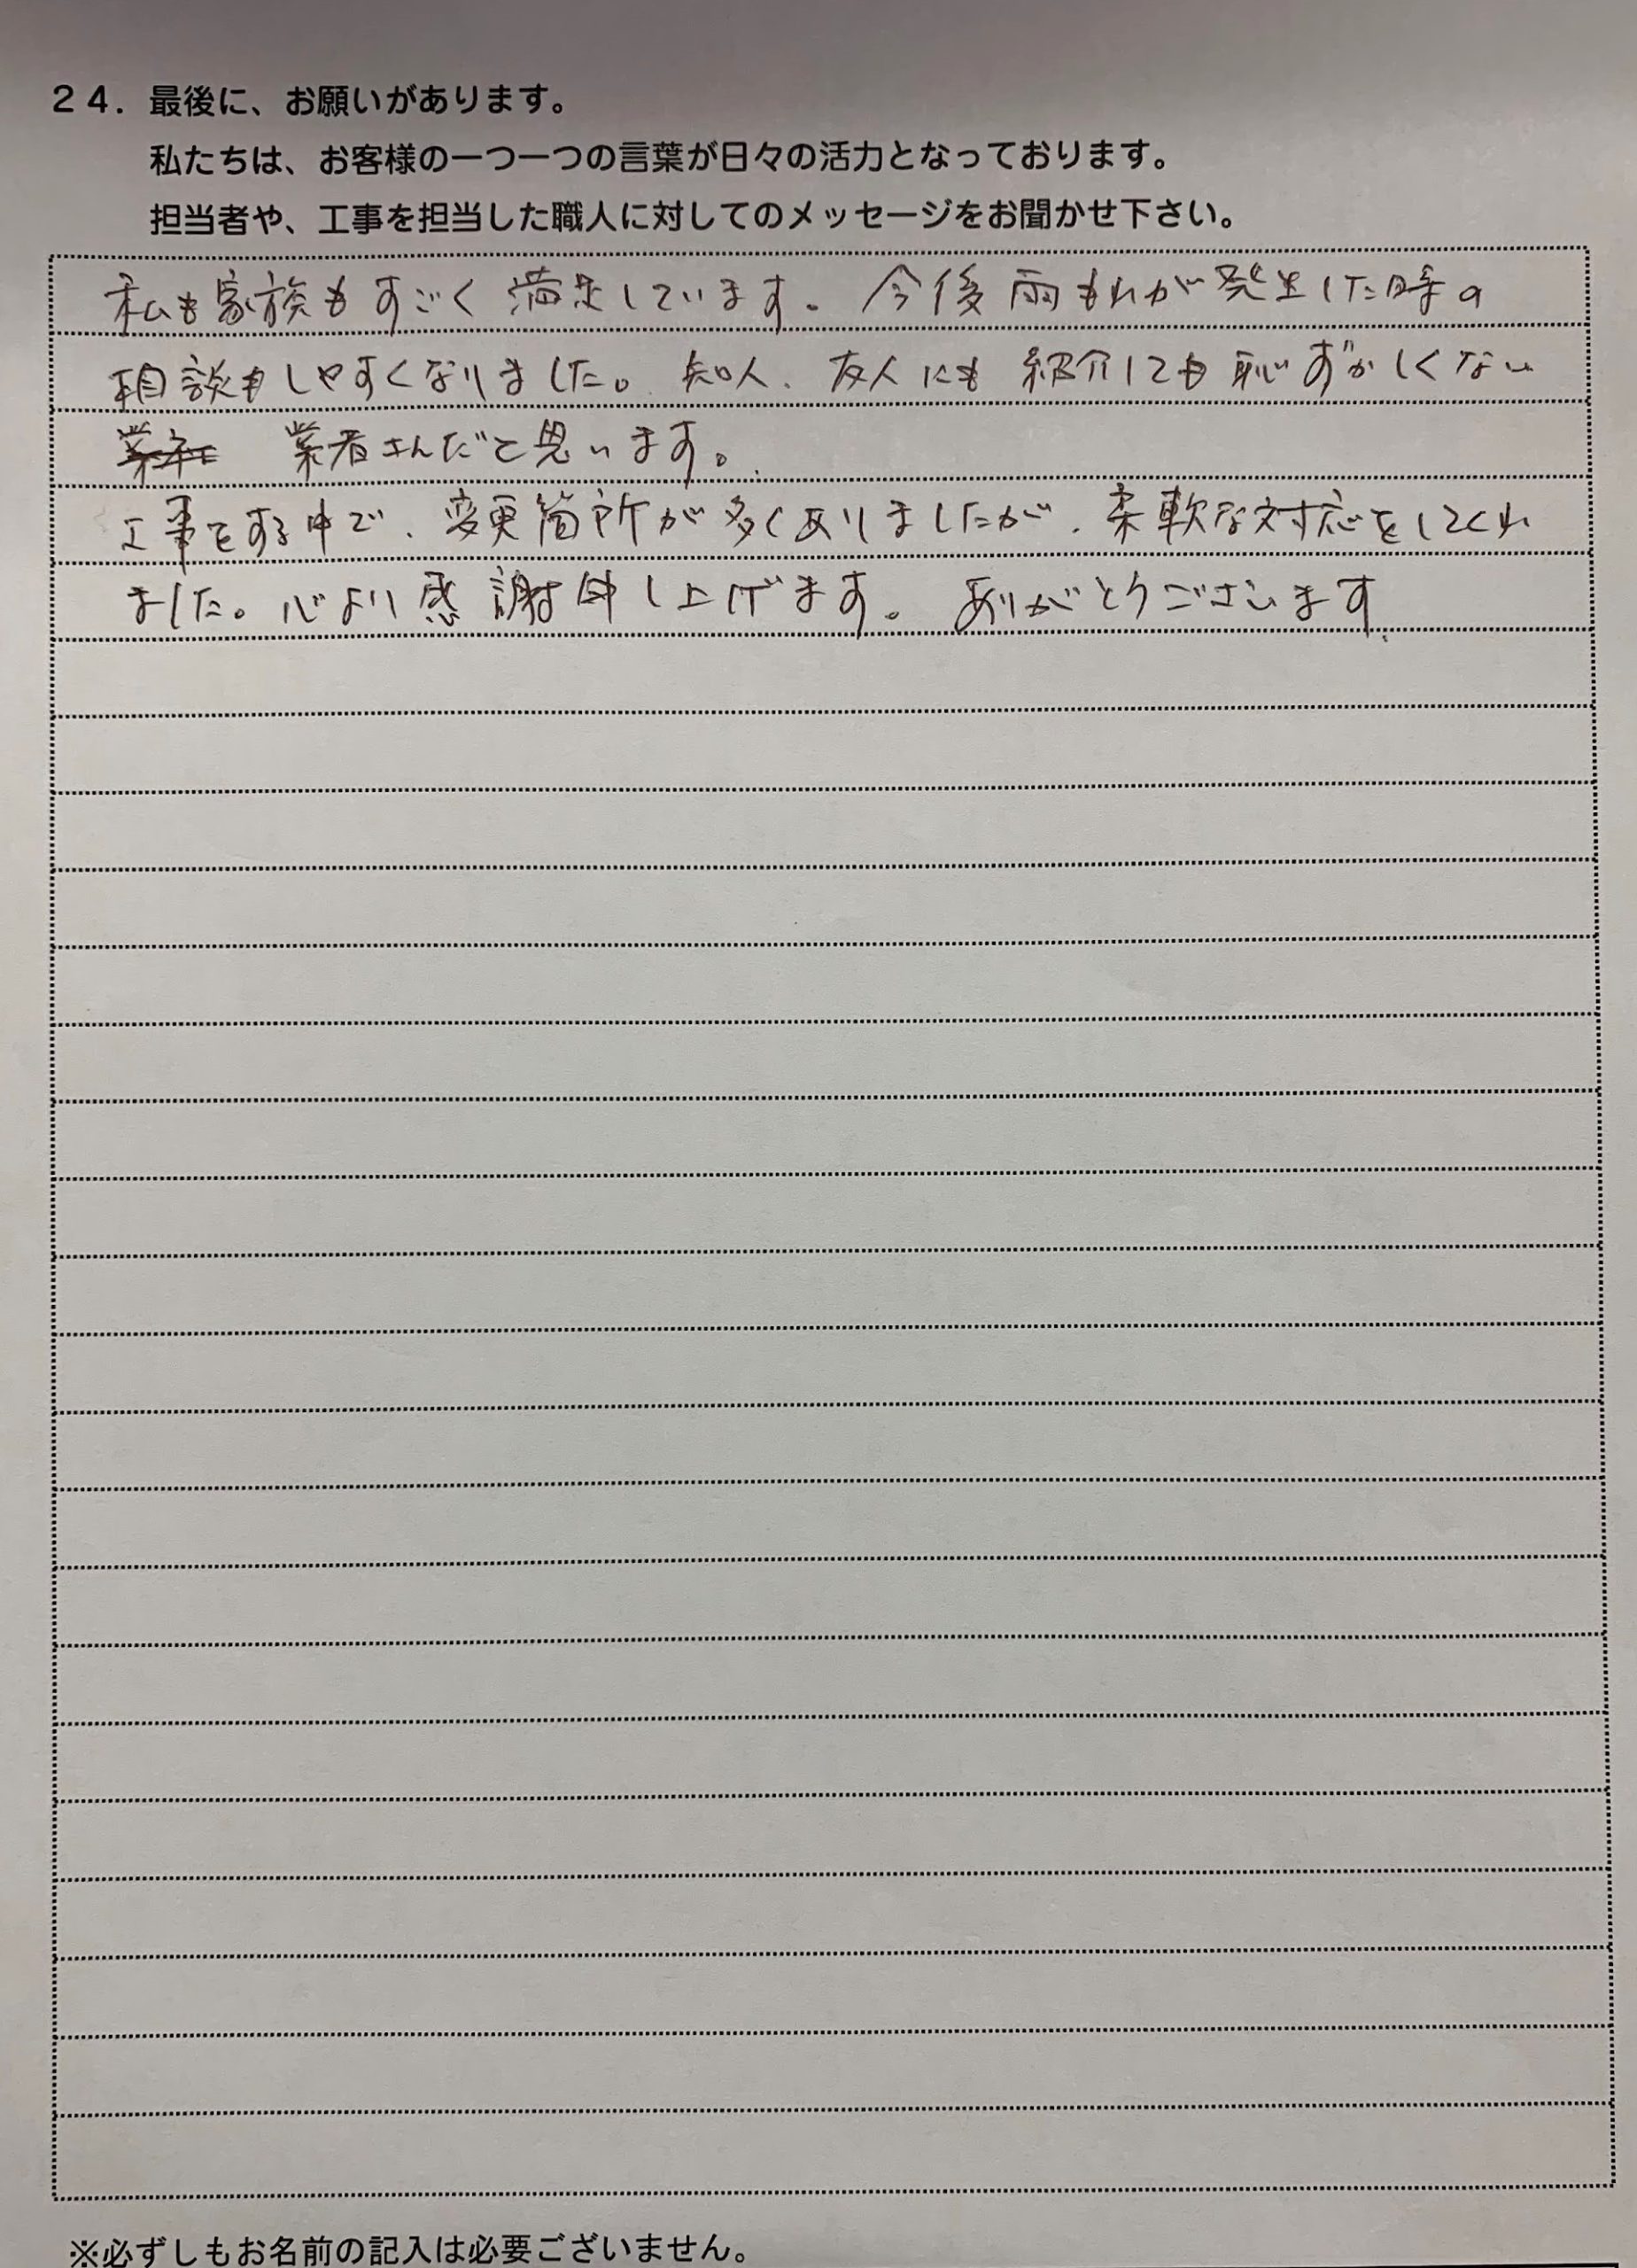 ２４．最後に、お願いがあります。
私たちは、お客様の一つ一つの言葉が日々の活力となっております。
担当者や、工事を担当した職人に対してのメッセージをお聞かせ下さい。
私も家族もすごく満足しています。今後雨もれが発生した時の
相談もしやすくなりました。知人、友人にも紹介しても恥ずかしくない
業者さんだと思います。
工事をする中で、変更箇所が多くありましたが、柔軟な対応をしてくれ
ました。心より感謝申し上げます。ありがとうございます
※必ずしもお名前の記入は必要ございません。